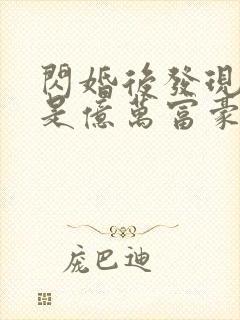 閃婚後發現
是億萬富豪
庞巴迪